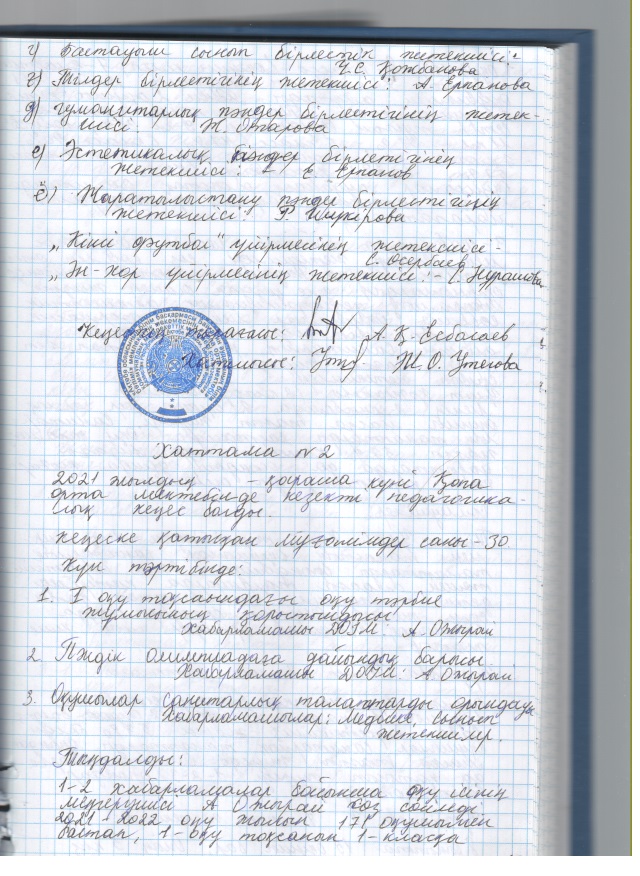 г) Бастауыш сынып бірлестік жетекшісі:
Ч.С. Қожбанова
г) Тілдер бірлестігінің жетекшісі: А Ерпанова
д) гуманитарлық пәндер бірлестігінің жетек-
шісі: Ж Отарова
е) Эстетикалық пәндер бірлетігінең
жетекшісі: Е Ерпанов
ё) Жаратылыстану пәндер бірлестігінің
жетекшісі: Р. Шукерова
„Кіші футбол" үйірмесінің жетексшісі -
С. Осербаев
„Ән-хор үйірмесінің жетекшісі:- С. Нурашова
Кеңестің төрағасы: А. Қ. Есбалаев
Хатшысы: Ж. О. Утегова
Хаттама N2
2021 жылдың - қараша күні Қопа
орта мектебінде кезекті педагогика-
лық кеңес болды.
Кеңеске қатысқан мұғалімдер саны - 30
Күн тәртібінде:
1. I оқу тоқсанындағы оқу тәрбие
жұмысының қорытындысы
Хабарламашы ДОІМ: А Ожырай
2. Пәндік олимпиадаға дайындық барысы.
Хабарламашы ДОІМ: А Ожырай
3. Оқушылар санитарлық талаптарды орындауы
Хабарламашылар: Медбике, сынып
жетекшілер.
Тыңдалды:
1-2 хабарламалар бойынша оқу ісінің
меңгерушісі А Ожырай сөз сөйледі
2021-2022 оқу жылын 171 оқушымен
бастап, 1-оқу тоқсанын 1-класқа